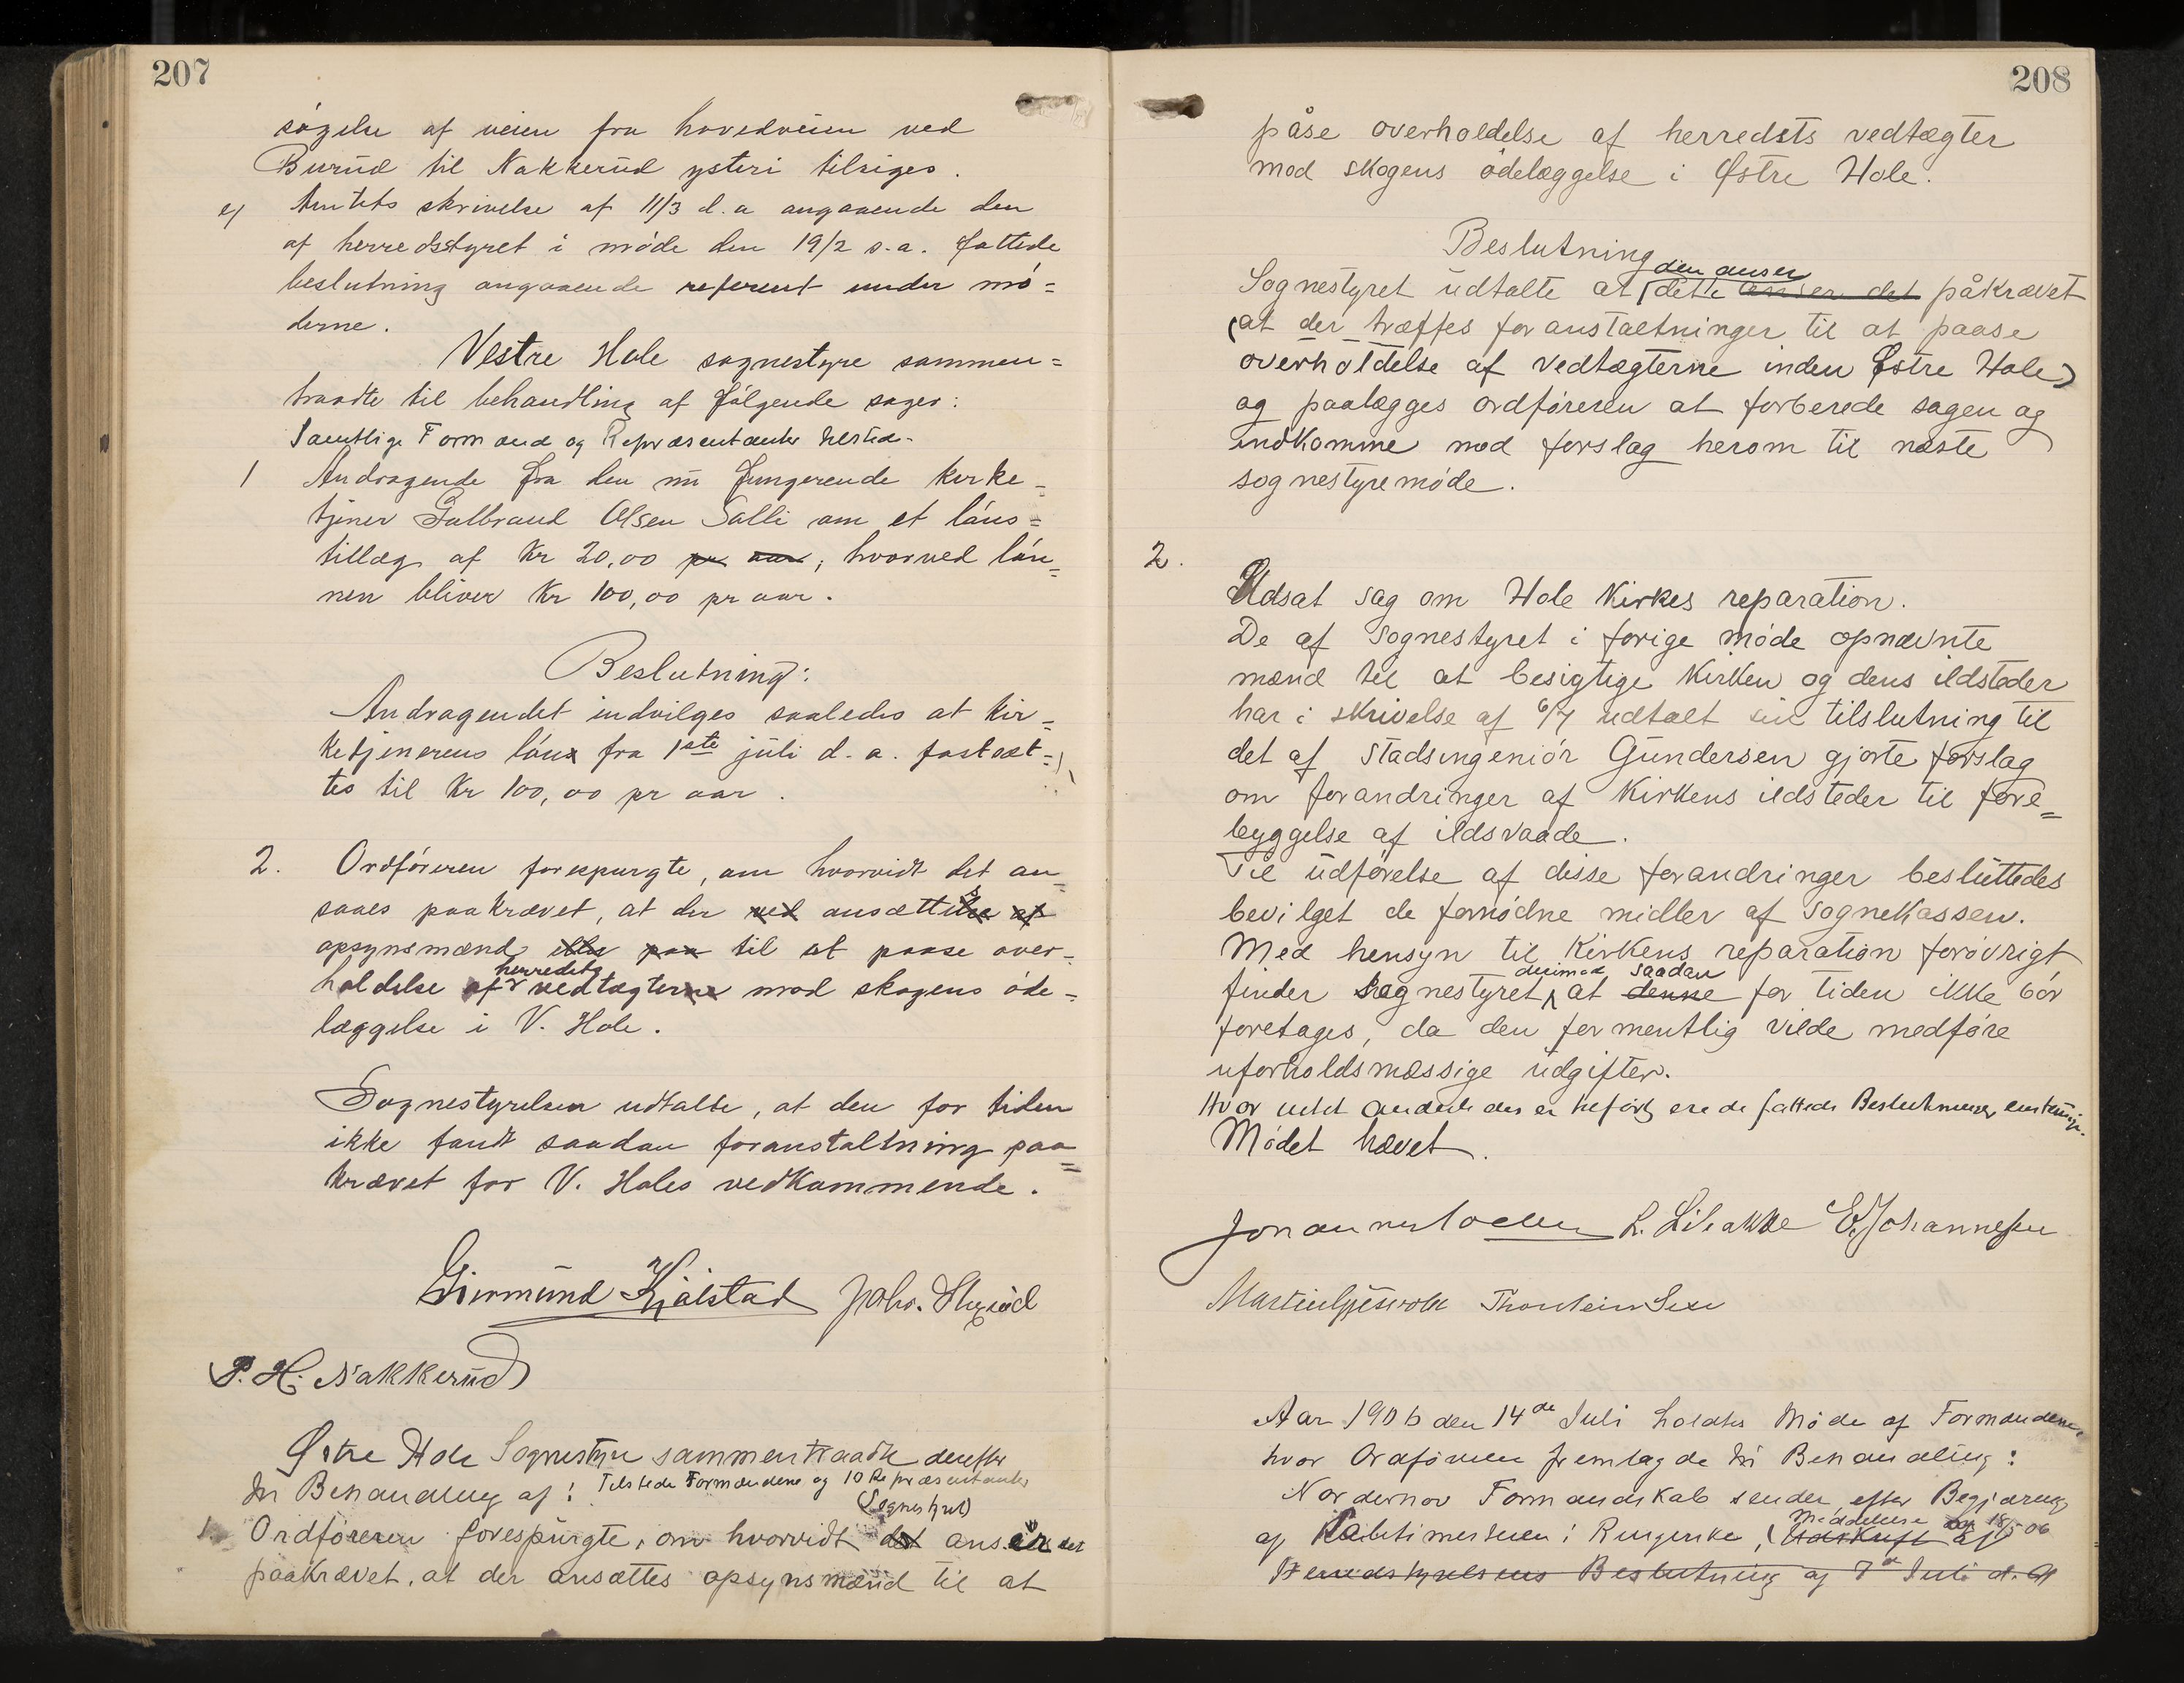 207
søgelse af veien fra hovedveien ved
Burud til Nakkerud ysteri tilsiges.
e) Amtets skrivelse af 11/3 d.a angaaende den
af herredsstyret i møde den 19/2 s.a. fattede
beslutning angaaende referent under mø=
derne.
Vestre Hole sognestyre sammen=
traadte til behandling af følgende sager:
Samtlige Formænd og Repræsentanter tilsted.
1 Andragende fra den nu fungerende kirke=
tjener Gulbrand Olsen Salli om et løns=
tillæg af Kr 20,00 pr aar, hvorved løn=
nen bliver Kr 100,00 pr aar.
Beslutning:
Andragendet indvilges saaledes at kir=
ketjenerens løn fra 1ste juli d.a. fastsæt=
tes til Kr 100,00 pr aar.
2. Ordføreren forespurgte, om hvorvidt det an=
saaes paakrævet, at der ved ansættelse af
opsynsmænd eller paa til at paase over=
holdelse af herredets vedtægterne mod skogens øde=
læggelse i V. Hole.
Sognestyrelsen udtalte, at den for tiden
ikke fandt saadan foranstaltning paa=
krævet for V. Holes vedkommende.
Giermund Kjølstad Johs.
P. H. Nakkerud
Østre Hole Sognestyre sammentraadte derefter
til Behandling af: Tilstede Formændene og 10 Repræsentanter
(Sognestyret)
1. Ordføreren forespurgte, om hvorvidt det anser det
paakrævet, at der ansættes opsynsmænd til at
208
påse overholdelse af herredets vedtægter
mod skogens ødelæggelse i Østre Hole.
Beslutning
den anser
Sognestyret udtalte at dette anser det påkrævet
(at der træffes foranstaltninger til at paase
overholdelse af vedtægterne inden Østre Hole)
og paalægges ordføreren at forberede sagen og
indkomme med forslag herom til næste
sognestyremøde.
2.
Udsat sag om Hole Kirkes reparation.
De af Sognestyret i forige møde opnævnte
mænd til at besigtige Kirken og dens ildsteder
har i skrivelse af 6/7 udtalt sin tilslutning til
det af Stadsingeniør Gundersen gjorte forslag
om forandringer af Kirkens ildsteder til fore=
byggelse af ildsvaade.
Til udførelse af disse forandringer besluttedes
bevilget de fornødne midler af Sognekassen.
Med hensyn til Kirkens reparation forøvrigt
derimod saadan
finder Sognestyret at denne for tiden ikke bør
foretages, da den formentlig vilde medføre
uforholdsmæssige udgifter.
Hvor intet anderledes er tilført ere de fattede Beslutninger enstemmige.
Mødet hævet.
L. Libakke E. Johannesen
Aar 1906 den 14de Juli holdtes Møde af Formændene,
hvor Ordføreren fremlagde til Behandling:
Norderhov Formandskab sender, efter Begjæring
Meddelelse af 18/5 06
af i Ringerike, Udskrift af
Herredstyrelsens Beslutning af 7de Juli d. A